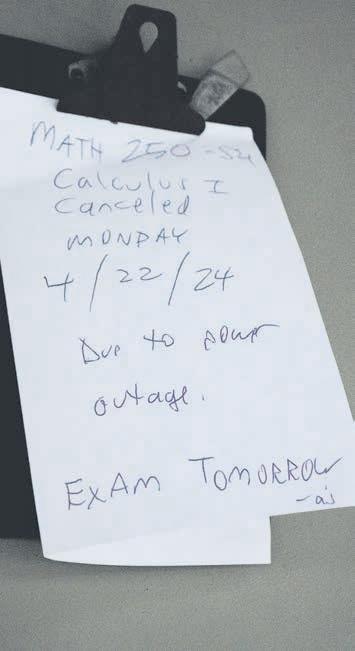 MATH 250 -
Calculus I
Canceled
MONDAY
4/22/24
Due to power
outage.
EXAM TOMORROW